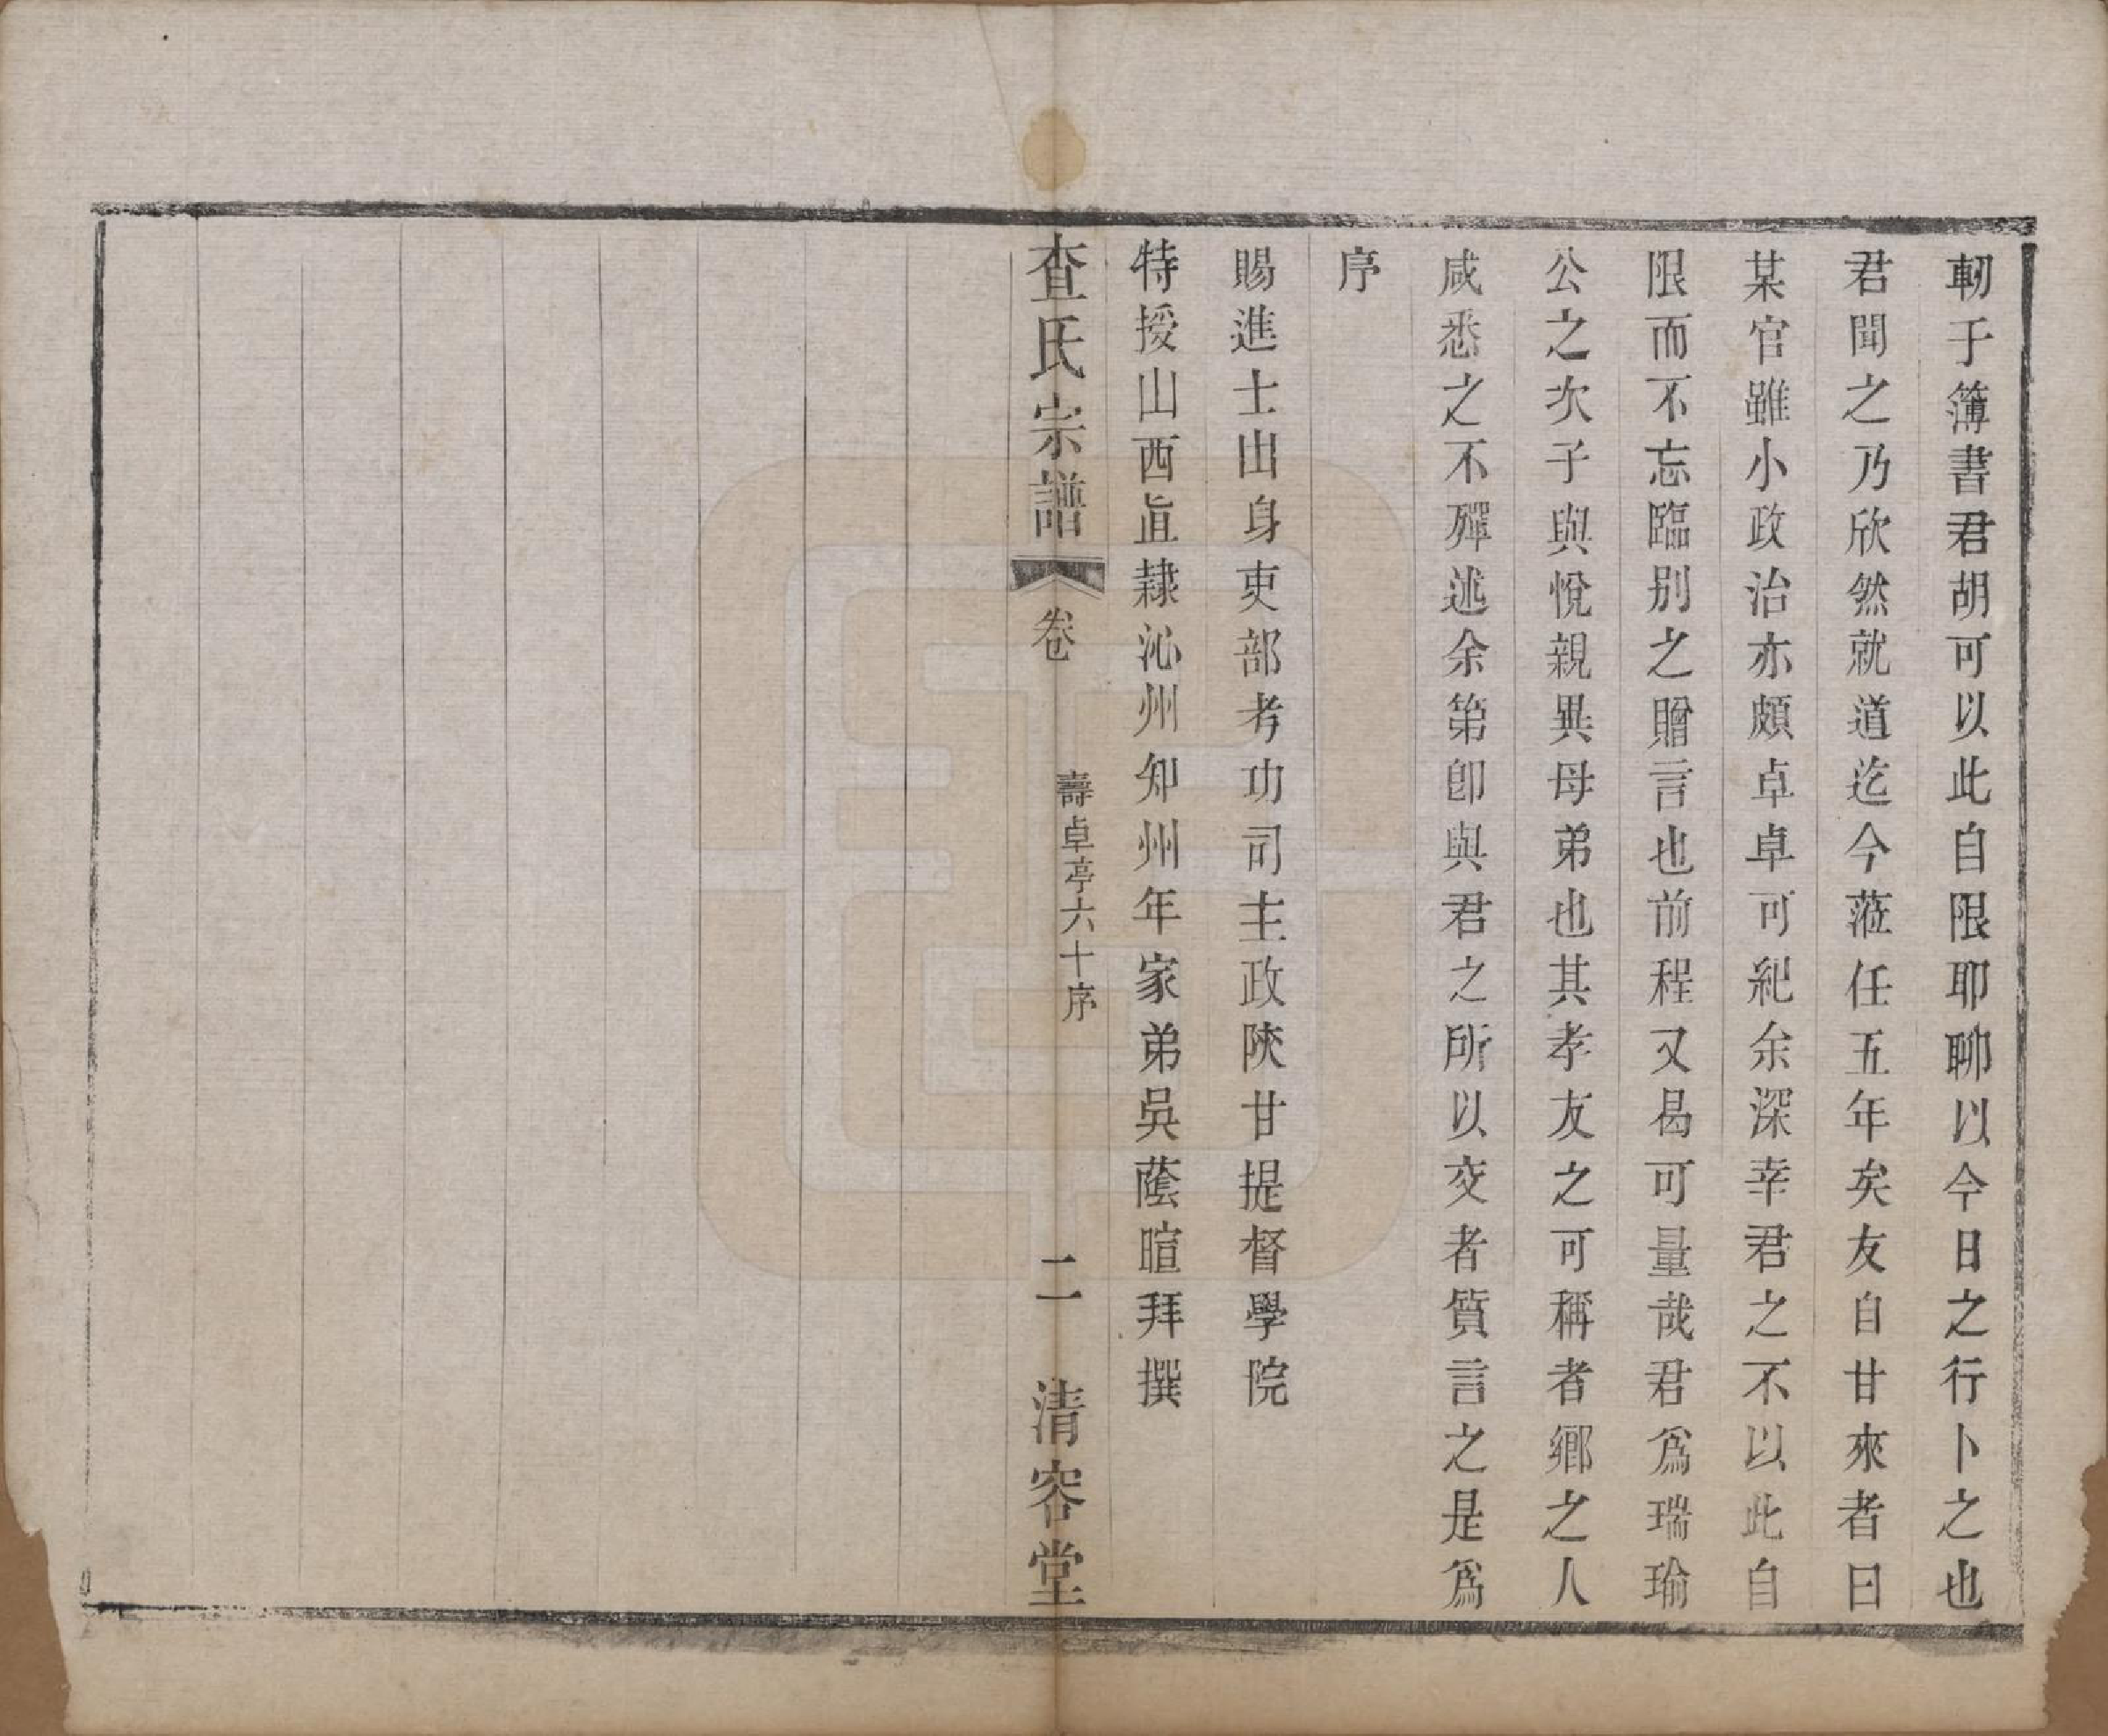 軔于簿書君胡可以此自限耶聊以今日之行卜之也
君聞之乃欣然就道迄今蒞任五年矣友自甘來者曰
某官雖小政治亦頗卓卓可紀余深幸君之不以此自
限而不忘臨别之贈言也前程又曷可量哉君爲瑞瑜
公之次子與悅親異母弟也其孝友之可稱者鄉之人
咸悉之不殫述余第卽與君之所以交者質言之是爲
序
賜進士出身吏部考功司主政陝甘提督學院
特授山西直隸沁州知州年家弟吳蔭暄拜撰
查氏宗譜 卷 壽卓亭六十序 二 清容堂